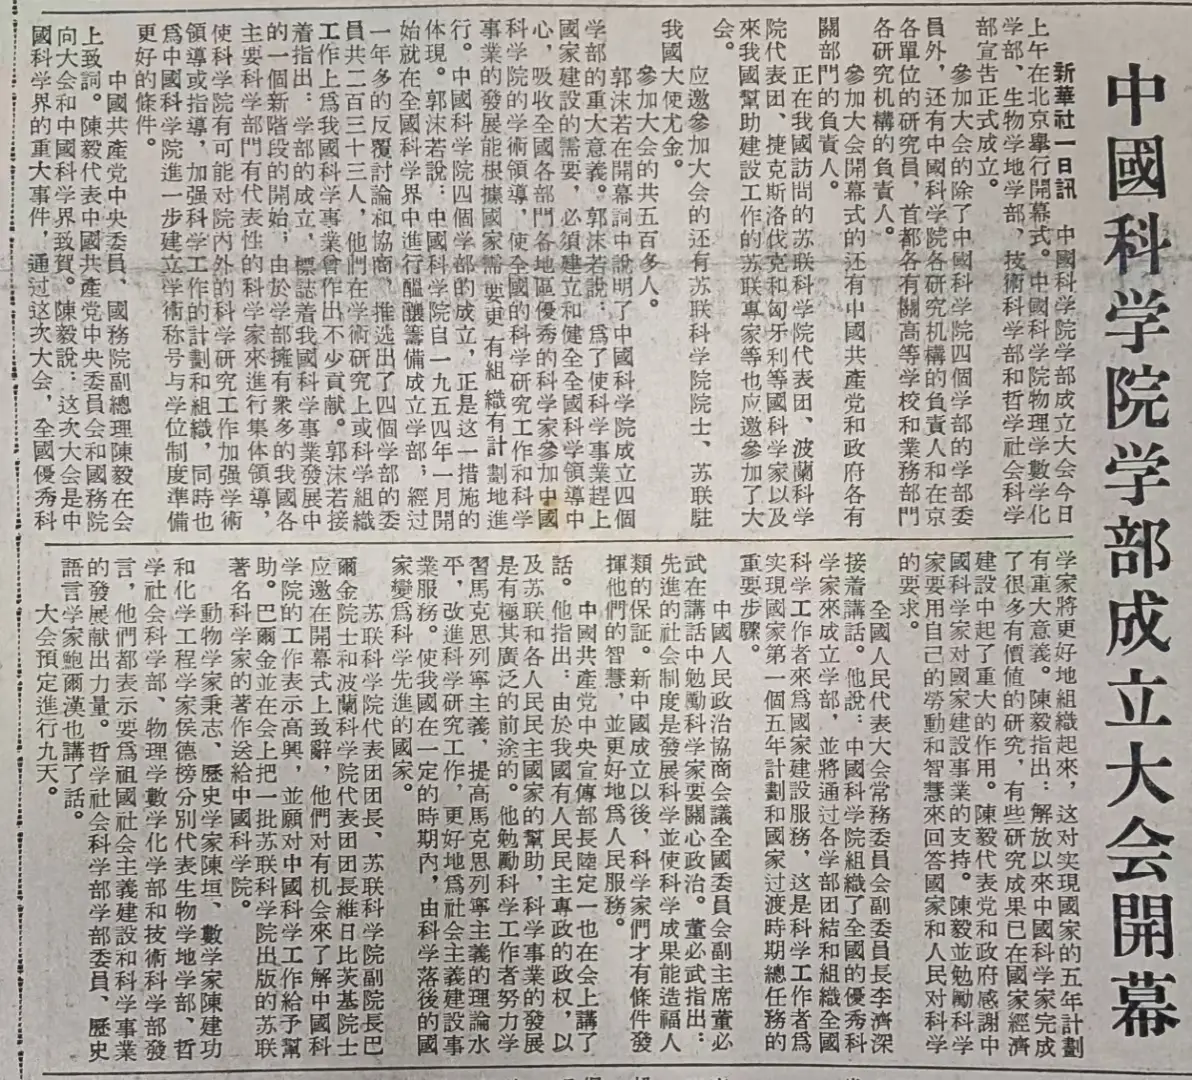 中國科学院学部成立大会開幕
新華社一日訊　中國科学院学部成立大会今日
上午在北京舉行開幕式。中國科学院物理学數学化
学部、生物学地学部、技術科学部和哲学社会科学
部宣告正式成立。
参加大会的除了中國科学院四個学部的学部委
員外，还有中國科学院各研究机構的負責人和在京
各單位的研究員，首都各有關高等学校和業務部門
各研究机構的負責人。
参加大会開幕式的还有中國共產党和政府各有
關部門的負責人。
正在我國訪問的苏联科学院代表团、波蘭科学
院代表团、捷克斯洛伐克和匈牙利等國科学家以及
來我國幫助建設工作的苏联專家等也应邀参加了大
会。
应邀参加大会的还有苏联科学院院士、苏联駐
我國大使尤金。
参加大会的共五百多人。
郭沫若在開幕詞中說明了中國科学院成立四個
学部的重大意義。郭沫若說：爲了使科学事業趕上
國家建設的需要，必須建立和健全全國科学領導中
心，吸收全國各部門各地區優秀的科学家参加中國
科学院的学術領導，使全國的科学研究工作和科学
事業的發展能根據國家需要更有組織有計劃地進
行。中國科学院四個学部的成立，正是这一措施的
体現。郭沫若說：中國科学院自一九五四年一月開
始就在全國科学界中進行醞釀籌備成立学部，經过
一年多的反覆討論和協商，推选出了四個学部的委
員共二百三十三人，他們在学術研究上或科学組織
工作上爲我國科学事業曾作出不少貢献。郭沫若接
着指出：学部的成立，標誌着我國科学事業發展中
的一個新階段的開始，由於学部擁有衆多的我國各
主要科学部門有代表性的科学家來進行集体領導，
使科学院有可能对院內外的科学研究工作加强学術
領導或指導，加强科学工作的計劃和組織，同時也
爲中國科学院進一步建立学術称号与学位制度準備
更好的條件。
中國共產党中央委員、國務院副總理陳毅在会
上致詞。陳毅代表中國共產党中央委員会和國務院
向大会和中國科学界致賀。陳毅說：这次大会是中
國科学界的重大事件，通过这次大会，全國優秀科
学家將更好地組織起來，这对实現國家的五年計劃
有重大意義。陳毅指出：解放以來中國科学家完成
了很多有價値的研究，有些研究成果已在國家經濟
建設中起了重大的作用。陳毅代表党和政府感謝中
國科学家对國家建設事業的支持。陳毅並勉勵科学
家要用自己的勞動和智慧來回答國家和人民对科学
的要求。
全國人民代表大会常務委員会副委員長李濟深
接着講話。他說：中國科学院組織了全國的優秀科
学家來成立学部，並將通过各学部团結和組織全國
科学工作者來爲國家建設服務，这是科学工作者爲
实現國家第一個五年計劃和國家过渡時期總任務的
重要步驟。
中國人民政治協商会議全國委員会副主席董必
武在講話中勉勵科学家要關心政治。董必武指出：
先進的社会制度是發展科学並使科学成果能造福人
類的保証。新中國成立以後，科学家們才有條件發
揮他們的智慧，並更好地爲人民服務。
中國共產党中央宣傳部長陸定一也在会上講了
話。他指出：由於我國有人民民主專政的政权，以
及苏联和各人民民主國家的幫助，科学事業的發展
是有極其廣泛的前途的。他勉勵科学工作者努力学
習馬克思列寧主義，提高馬克思列寧主義的理論水
平，改進科学研究工作，更好地爲社会主義建設事
業服務。使我國在一定的時期內，由科学落後的國
家變爲科学先進的國家。
苏联科学院代表团团長、苏联科学院副院長巴
爾金院士和波蘭科学院代表团团長維日比茨基院士
应邀在開幕式上致辭，他們对有机会來了解中國科
学院的工作表示高興，並願对中國科学工作給予幫
助。巴爾金並在会上把一批苏联科学院出版的苏联
著名科学家的著作送給中國科学院。
動物学家秉志、歷史学家陳垣、數学家陳建功
和化学工程学家侯德榜分別代表生物学地学部、哲
学社会科学部、物理学數学化学部和技術科学部發
言，他們都表示要爲祖國社会主義建設和科学事業
的發展献出力量。哲学社会科学部学部委員、歷史
語言学家鮑爾漢也講了話。
大会預定進行九天。